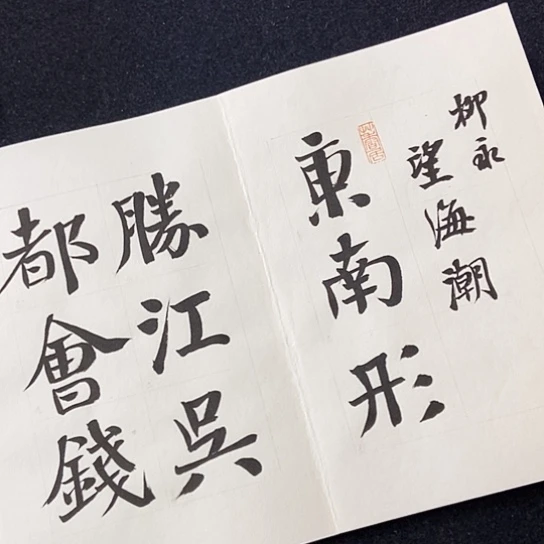 柳永
望海潮
東南形
勝江吳
都會錢